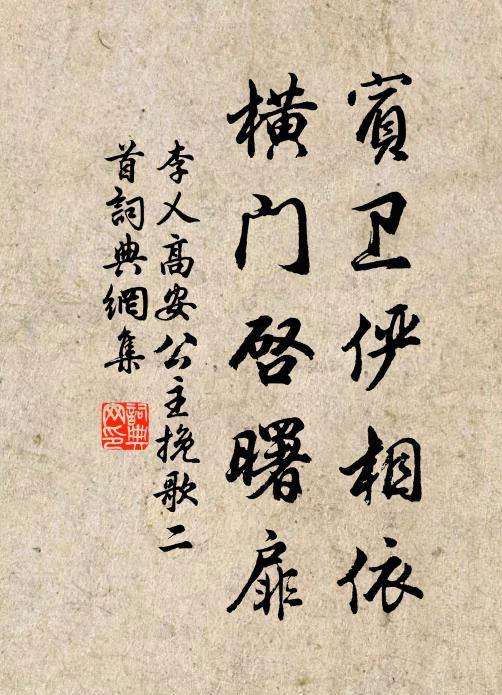 賓卫俨相依
横门啓曙扉
李乂高安公主挽歌二
首詞典網集
詞典
网印